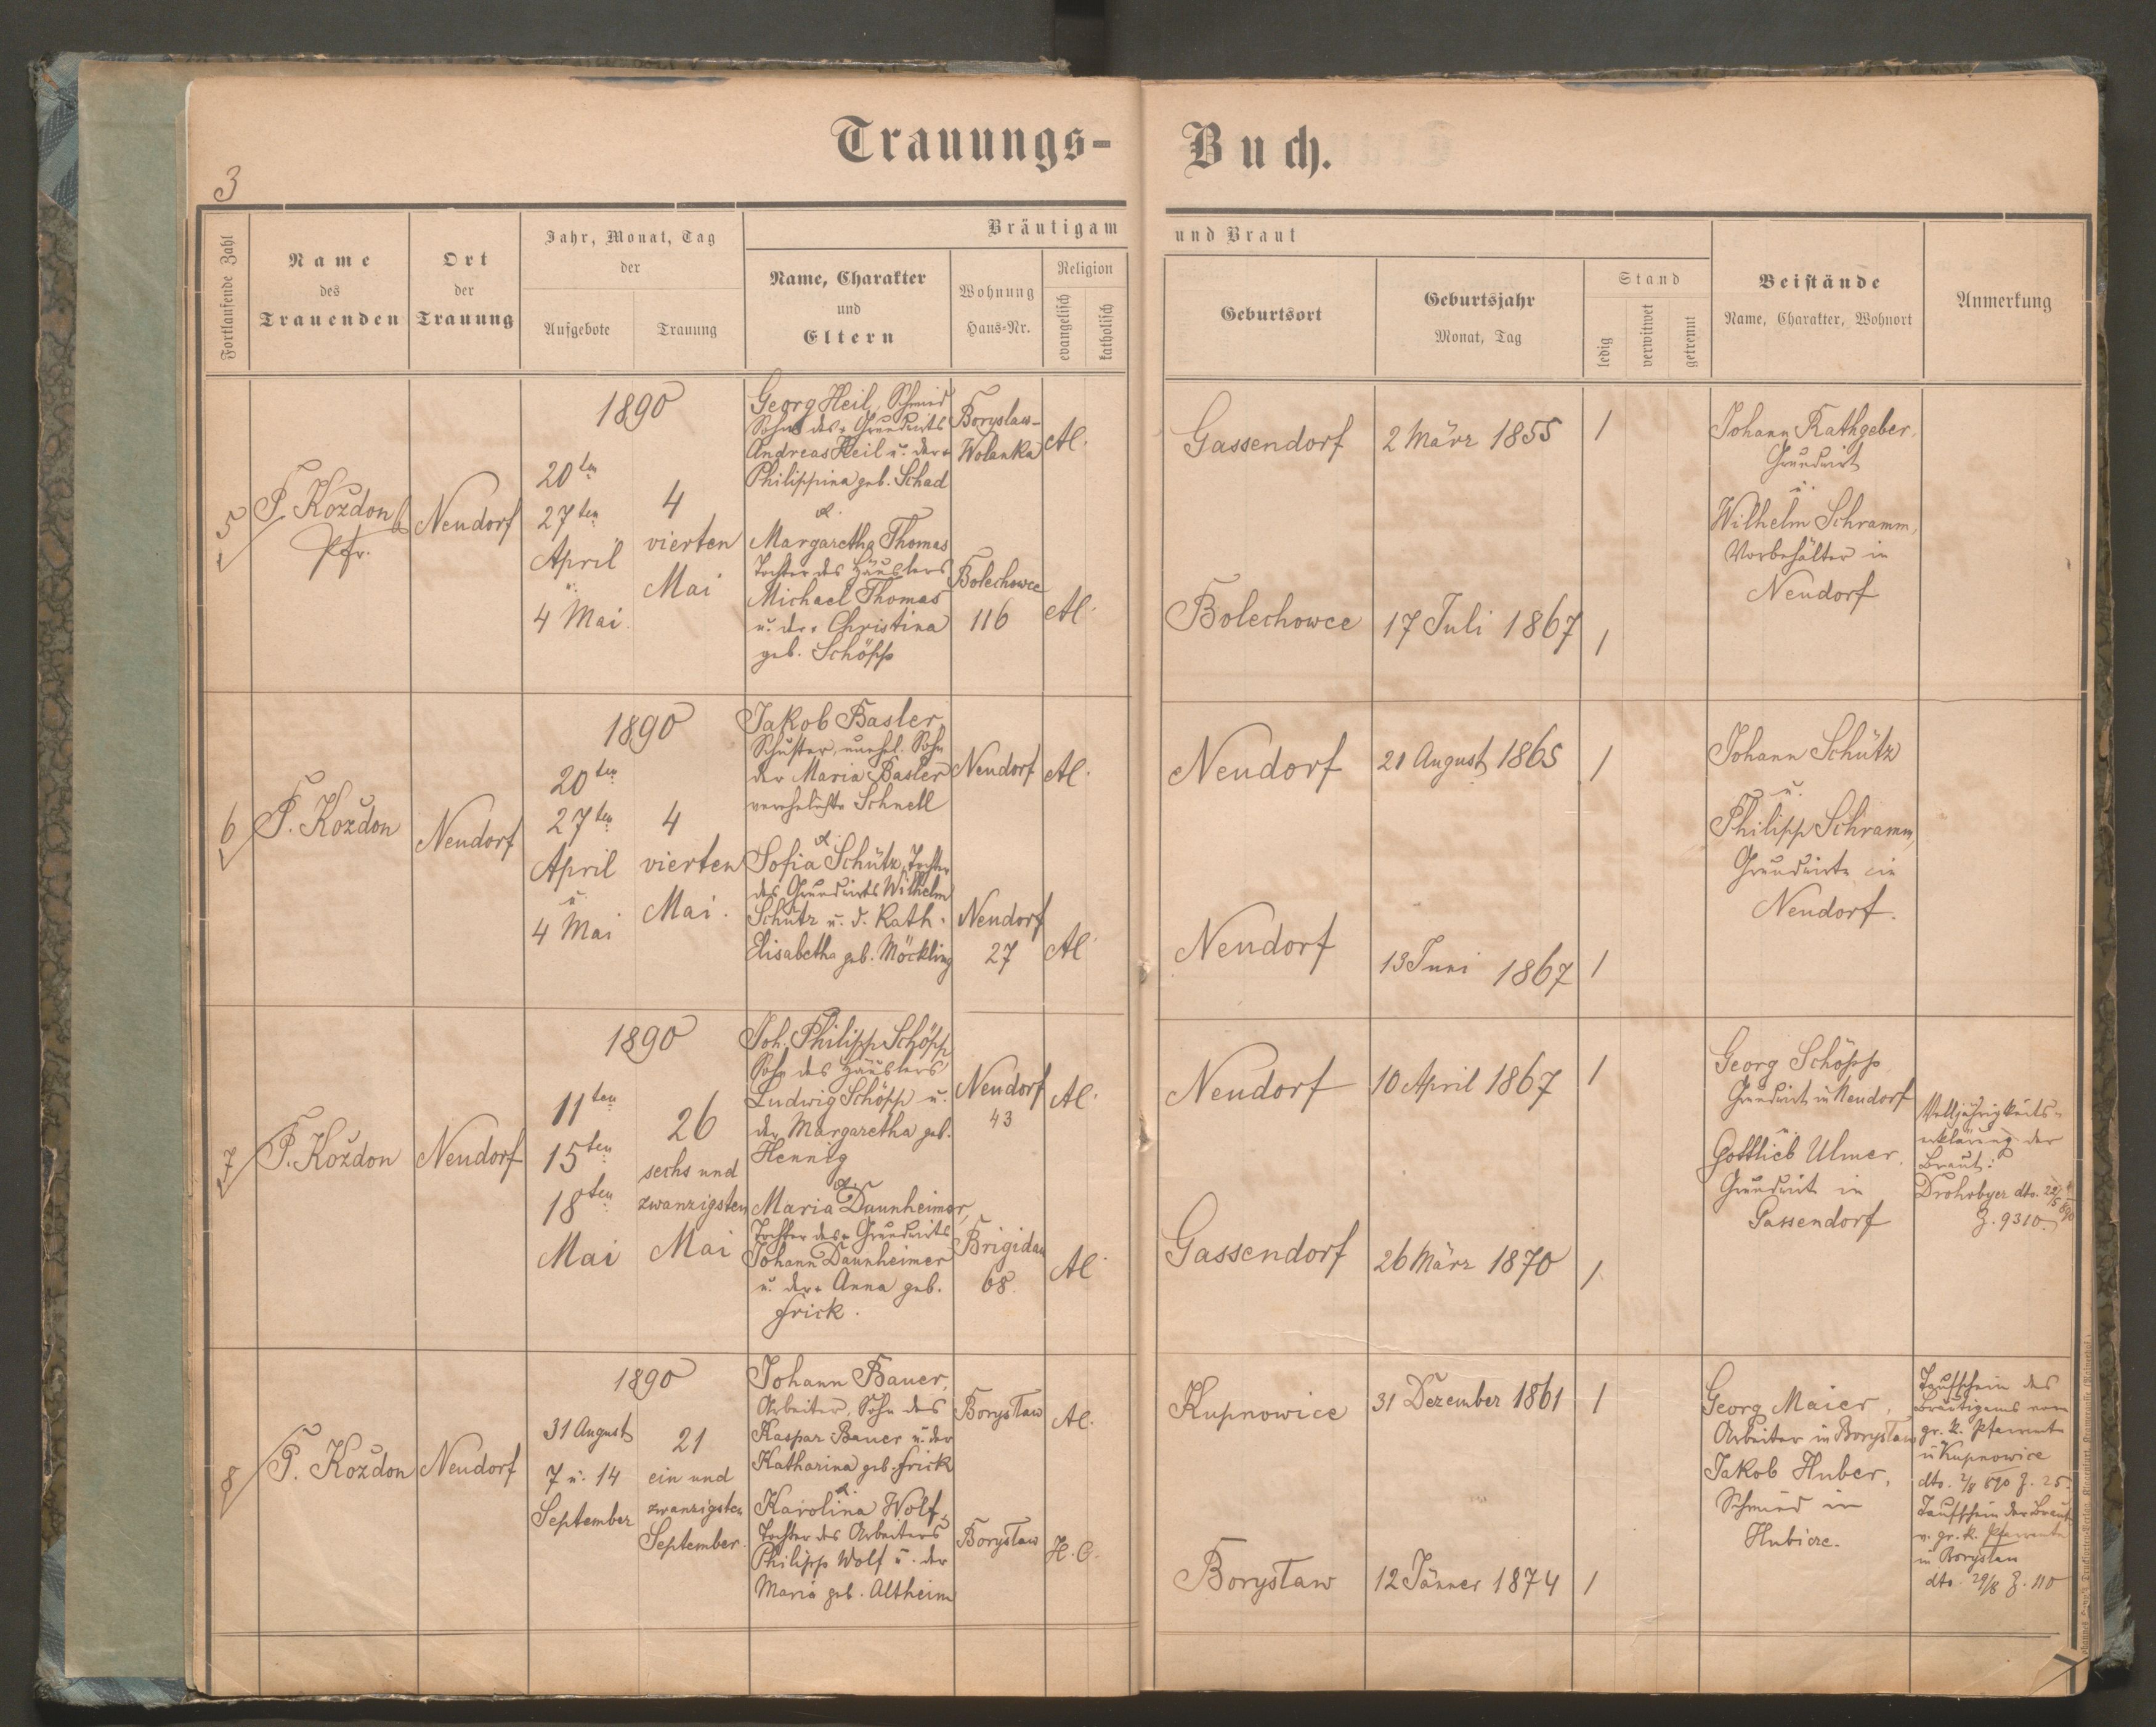 Trauungs-Buch.
3
Fortlaufende Zahl
Name
des
Trauenden
Ort
der
Trauung
Jahr, Monat, Tag
der
Aufgebote
Trauung
Bräutigam und Braut
Name, Charakter
und
Eltern
Wohnung
Haus=Nr.
Religion
evangelisch
katholisch
Geburtsort
Geburtsjahr
Monat, Tag
Stand
ledig
verwitwet
getrennt
Beistände
Name, Charakter, Wohnort
Anmerkung
5
P. Kozdon
Pfr.
Neudorf
1890
20ten
27ten
April
u.
4 Mai.
4
vierten
Mai
Georg Heil, Schmid
Sohn des + Grundwirts
Andreas Heil u. der +
Philippina geb. Schad
&.
Margaretha Thomas
Tochter des Häuslers
Michael Thomas
u. der + Christina
geb. Schöpp
Boryslaw-
Wolanka
Bolechowce
116
Al.
Al.
Gassendorf
2 März 1855
1
Bolechowce
17 Juli 1867
1
Johann Rathgeber,
Grundwirt
u.
Wilhelm Schramm,
Vorbehälter in
Neudorf
6
P. Kozdon
Neudorf
1890
20ten
27ten
April
u.
4 Mai
4
vierten
Mai.
Jakob Basler,
Schuster, unehel. Sohn
der Maria Basler
verehelichte Schnell
&.
Sofia Schütz, Tochter
des Grundwirts Wilhelm
Schütz u. d. Kath.
Elisabetha geb. Möckling
Neudorf
Neudorf
27
Al.
Al.
Neudorf
21 August 1865
1
Neudorf
13 Juni 1867
1
Johann Schütz
u.
Philipp Schramm,
Grundwirte in
Neudorf.
7
P. Kozdon
Neudorf
1890
11ten
15ten
18ten
Mai
26
sechs und
zwanzigsten
Mai
Joh. Philipp Schöpp
Sohn des Häuslers
Ludwig Schöpp u.
der Margaretha geb.
Hennig
&.
Maria Daunheimer,
Tochter des + Grundwirts
Johann Daunheimer
u. der + Anna geb.
Frick.
Neudorf
43
Brigidau
68.
Al.
Al.
Neudorf
10 April 1867
1
Gassendorf
26 März 1870
1
Georg Schöpp
Grundwirt in Neudorf
u.
Gottlieb Ulmer,
Grundwirt in
Gassendorf
Volljährigkeits-
erklärung der
Braut:
Drohobycz dto. 22/5 890
Z. 9310.
8
P. Kozdon
Neudorf
1890
31 August
7 u. 14
September
21
ein und
zwanzigsten
September.
Johann Bauer,
Arbeiter, Sohn des
Kaspar Bauer u. der
Katharina geb. Frick
&.
Karolina Wolf,
Tochter des Arbeiters
Philipp Wolf u. der
Maria geb. Altheim
Borysław
Borysław
Al.
H. C.
Kupnowice
31 Dezember 1861
1
Borysław
12 Jänner 1874
1
Georg Maier,
Arbeiter in Borysław
Jakob Huber,
Schmied in
Hubicze.
Taufschein des
Bräutigams vom
gr. k. Pfarramte
in Kupnowice
dto. 2/8 890 Z. 25.
Taufschein der Braut
v. gr. k. Pfarramte
in Borysław
dto. 29/8 Z. 110